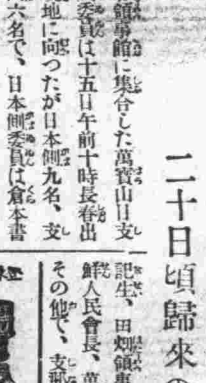 二十日頃歸來の
領事館に集合した萬寶山日支
委員は十五日午前十時長春出
地に向つたが日本側九名、支
六名で、日本側委員は倉本書
記生、田畑領事
鮮人民會長、萬
その他で、支那